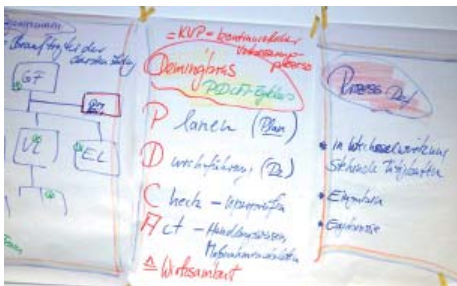 Beauftragter der
obersten Leitung
GF
VL
EL
= KVP = kontinuierlicher
Verbesserungs-
prozess
Demingkreis
PDCA-Zyklus
Planen (Plan)
Durchführen, (Do)
Check - überprüfen
Act - Handlungsweisen,
Maßnahmen einleiten
≙ Wirksamkeit
Prozess Def
* in Wechselwirkung
stehende Tätigkeiten
* Eingaben
* Ergebnisse